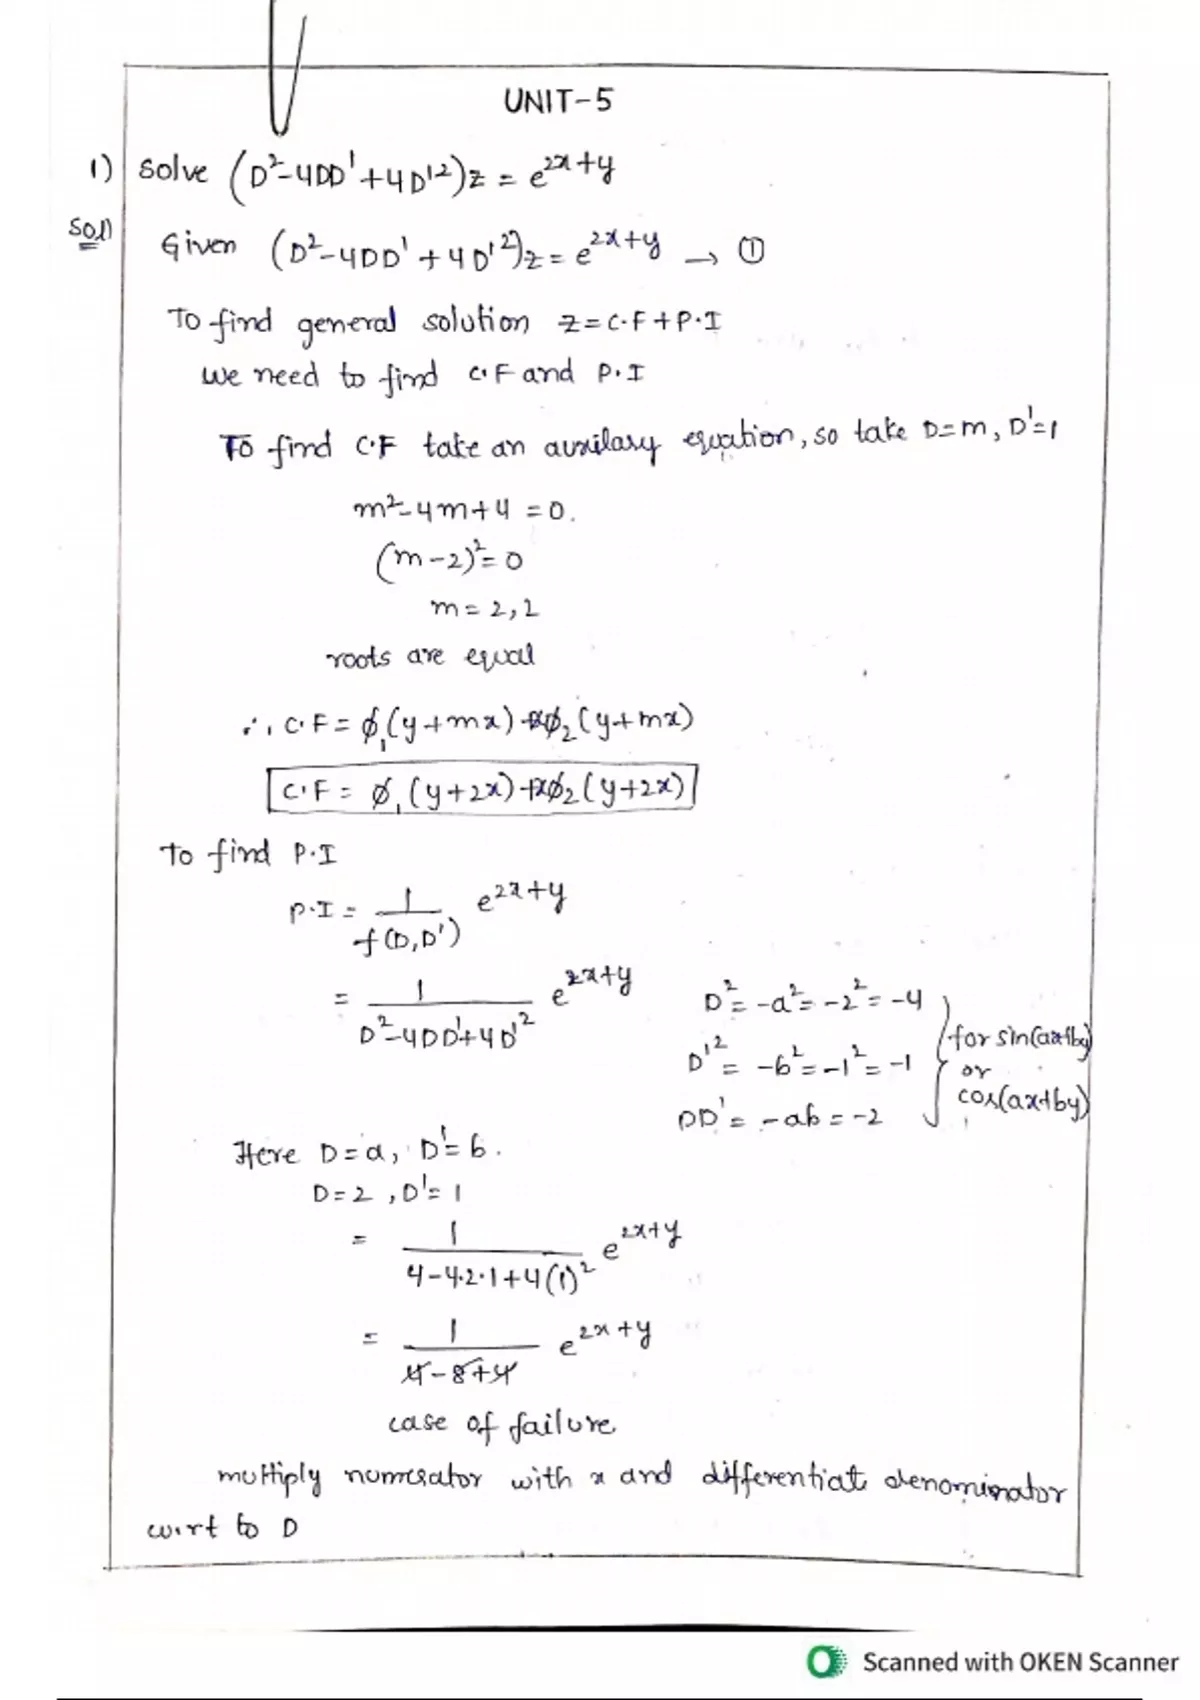 UNIT-5
1) Solve (D²-4DD'+4D'²)z = e^2x+y
Sol) Given (D²-4DD'+4D'²)z = e^2x+y → ①
To find general solution z = C.F + P.I
we need to find C.F and P.I
To find C.F take an auxilary equation, so take D=m, D'=1
m²-4m+4 = 0.
(m-2)² = 0
m = 2,2
roots are equal
∴ C.F = ϕ₁(y+mx)+xϕ₂(y+mx)
C.F = ϕ₁(y+2x)+xϕ₂(y+2x)
To find P.I
P.I = 1/f(D,D') e^2x+y
= 1/D²-4DD'+4D'² e^2x+y
D² = -a² = -2² = -4
D'² = -b² = -1² = -1
DD' = -ab = -2
for sin(ax+by)
or
cos(ax+by)
Here D=a, D'=b.
D=2, D'=1
= 1/4-4.2.1+4(1)² e^2x+y
= 1/4-8+4 e^2x+y
case of failure
multiply numerator with x and differentiate denominator
w.r.t to D
Scanned with OKEN Scanner